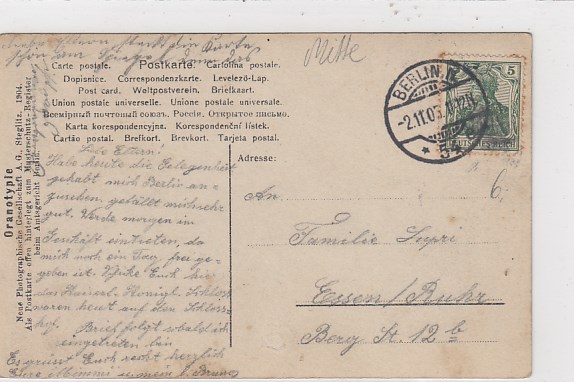 Carte postale. Postkarte. Cartolina postale.
Dopisnice. Correspondenzkarte. Levelező-Lap.
Post card. Weltpostverein. Briefkaart.
Union postale universelle. Unione postale universale.
Всемірный почтовый союз. Россія. Открытое письмо.
Karta korespondencyjna. Korespondenční lístek.
Cartão postal. Brefkort. Brevkort. Tarjeta postal.
Oranotypie
Neue Photographische Gesellschaft A. G. Steglitz. 1904.
Als Postkarte offen hinterlegt zum Musterschutz-Register
beim Amtsgericht Berlin.
Mitte
BERLIN
2.11.05
54
5
Liebe Eltern!
Habe heute die Gelegenheit
gehabt mich Berlin an-
zusehen, gefällt mich sehr
gut. Werde morgen im
Geschäft eintreten, da
mich noch ein Tag frei ge-
geben ist. Schike Euch hie
das Kaiserl. Königl. Schloß
waren heut auf den Schloss-
hof. Brief folgt sobald ich
eingetreten bin
Es grüsst Euch recht herzlich
Bruno
Adresse:
An
Familie
Essen/Ruhr
Berg St. 12 b
6